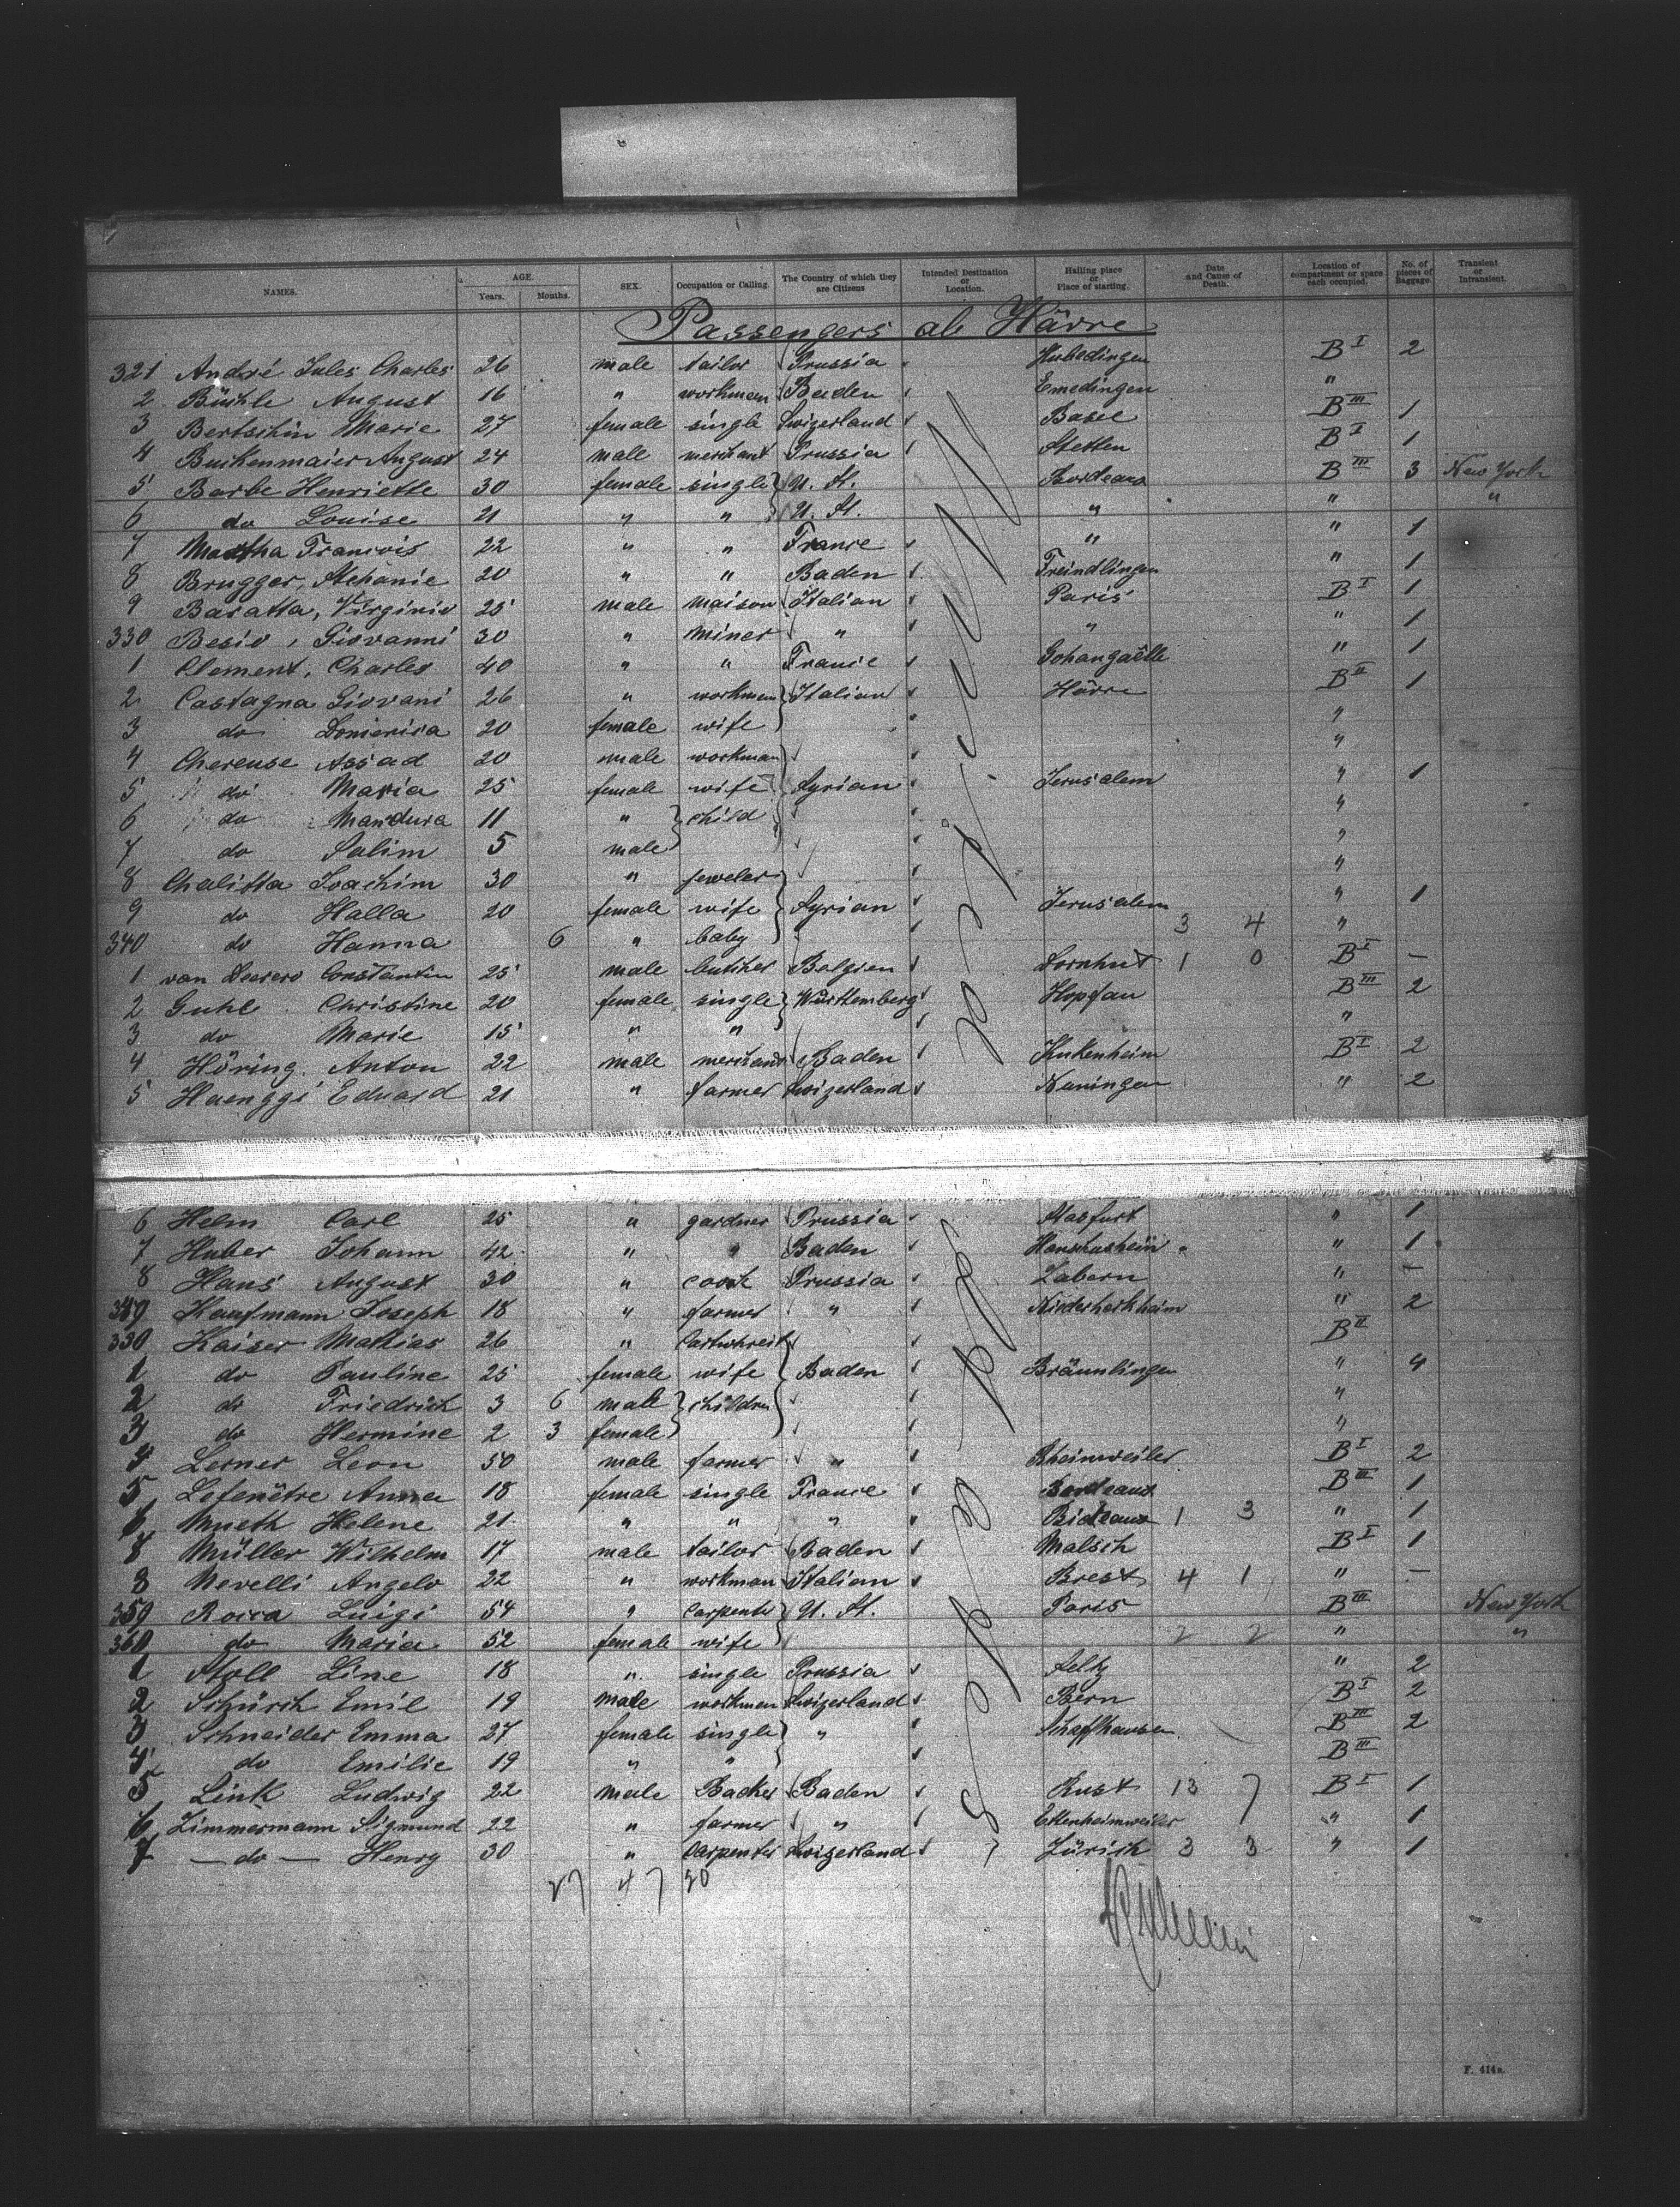 NAMES. AGE. Years. Months. SEX. Occupation or Calling. The Country of which they are Citizens Intended Destination or Location. Hailing place or Place of starting. Date and Cause of Death. Location of compartment or space each occupied. No. of pieces of Baggage. Transient or Intransient.
Passengers ab Hâvre
321 André Jules Charles 26 male tailor Prussia B I 2
2 Büchle August 16 " workman Baden Emedingen "
3 Bertschin Marie 27 female single Swizerland Basel B III 1
4 Buckenmaier August 24 male merchant Prussia Stetten B I 1
5 Barbe Henriette 30 female single U. St. Bordeaux B III 3 New York
6 do Louise 21 " " U. St. " " "
7 Martha Francois 22 " " France " " 1
8 Brugger, Stehanie 20 " " Baden Freindlingen " 1
9 Baratta, Virginio 25 male maison Italian Paris B I 1
330 Besio, Giovanni 30 " miner " " " 1
1 Clement, Charles 40 " " France " 1
2 Castagna Giovani 26 " workman Italian Hâvre B II 1
3 do 20 female wife "
4 Chereuse Assad 20 male workman "
5 do Maria 25 female wife Syrian Jerusalem " 1
6 do Mandura 11 " child "
7 do Salim 5 male "
8 Chalitta Joachim 30 " jeweler "
9 do Halla 20 female wife Syrian Jerusalem " 1
340 do Hanna 6 " baby 3 4 "
1 van Constantin 25 male butcher Belgien 1 0 B I —
2 Guhl Christine 20 female single Württemberg Hopfau B III 2
3 do Marie 15 " " "
4 Höring Anton 22 male merchant Baden B I 2
5 Haenggi Eduard 21 " farmer Swizerland Nuningen " 2
6 Helm Carl 25 " gardner Prussia Stasfurt " 1
7 Huber Johann 42 " " Baden " 1
8 Hans August 30 " cook Prussia Zabern " —
349 Kaufmann Joseph 18 " farmer " " 2
350 Kaiser Mathias 26 " B II
1 do Pauline 25 female wife Baden Bräunlingen " 4
2 do Friedrich 3 6 male children "
3 do Hermine 2 3 female "
4 Lerner Leon 50 male farmer " Rheinweiler B I 2
5 Lefenêtre Anna 18 female single France Bordeaux B III 1
6 Mueth Helene 21 " " " 1 3 " 1
7 Müller Wilhelm 17 male tailor Baden Malsch B I 1
8 Nevelli Angelo 22 " workman Italian Brest 4 1 " —
359 Rocca Luigi 54 " carpenter U. St. Paris B III New York
360 do Maria 52 female wife 2 2 " "
1 Stoll Line 18 " single Prussia Seltz " 2
2 Schürch Emil 19 male workman Swizerland Bern B I 2
3 Schneider Emma 27 female single " Schaffhausen B III 2
4 do Emilie 19 " " B III
5 Link Ludwig 22 male Backer Baden Rust 13 7 B I 1
6 Zimmermann Sigmund 22 " farmer " Ettenheimweiler " 1
7 — do — Henry 30 " carpenter Swizerland Zürich 3 3 " 1
27 47 20
F. 414a.